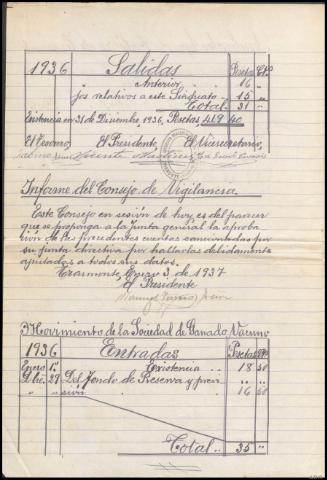 1936 Salidas Pesetas Cts
Anterior 16 "
jos relativos a este Sindicato .. 15 "
Total.. 31 "
Existencia en 31 de Diciembre, 1936, Pesetas 419 40
El Tesorero El Presidente El Vicesecretario,
Vicente Martínez
Informe del Consejo de Vigilancia.
Este Consejo en sesión de hoy, es del parecer
que se proponga a la Junta general la aproba
ción de las precedentes cuentas sancionadas por
su junta directiva por hallarlas debidamente
ajustadas a todos sus datos.
Trasmonte, Enero 3 de 1937
El Presidente
Movimiento de la Sociedad de Ganado Vacuno
1936 Entradas Pesetas Cts
Enero 1º Existencia .. 18 50
Dbre. 29 Del fondo de Reserva y previ
sión 16 50
Total.. 35 "